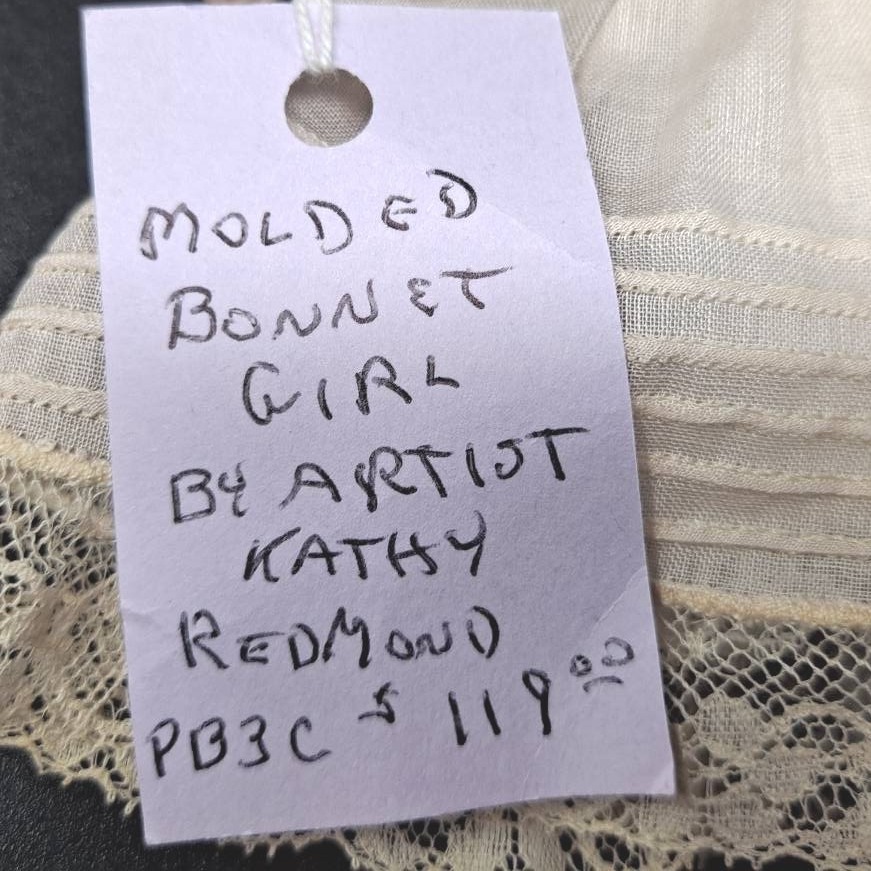 MOLDED
BONNET
GIRL
BY ARTIST
KATHY
REDMOND
PB3C $ 119.00